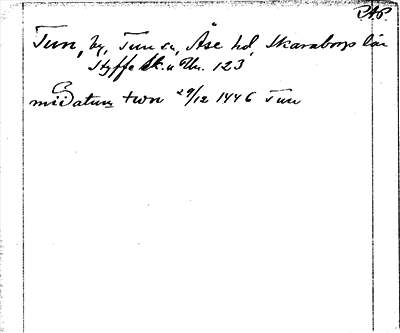 RAP.
Tun, by, Tun sn, Åse hd, Skaraborgs län
Styffe Sk. u Un. 123
Datum twn 29/12 1446 Tun